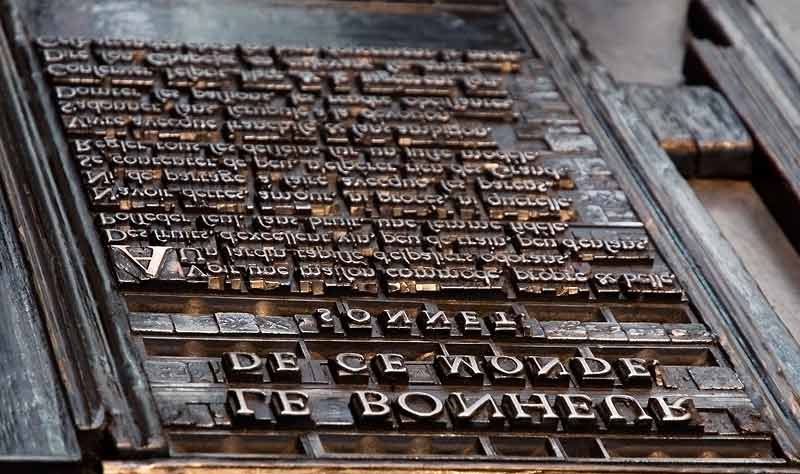 LE BONHEUR
DE CE MONDE
SONNET
Avoir une maiſon commode, propre & belle,
Un jardin tapiſſé d'eſpaliers odorans,
Des fruits, d'excellent vin, peu de train, peu d'enfans,
Poſſeder ſeul, ſans bruit, une femme fidele.
N'avoir dettes, amour, ni procés, ni querelle,
Ni de partage à faire avecque ſes parens,
Se contenter de peu, n'eſperer rien des Grands,
Regler tous ſes deſſeins ſur un juſte modele.
Vivre avecque franchiſe & ſans ambition,
S'adonner ſans ſcrupule à la devotion,
Domter ſes paſſions, les rendre obeiſſantes.
Conſerver l'eſprit libre, & le jugement
Dire ſon Chapelet